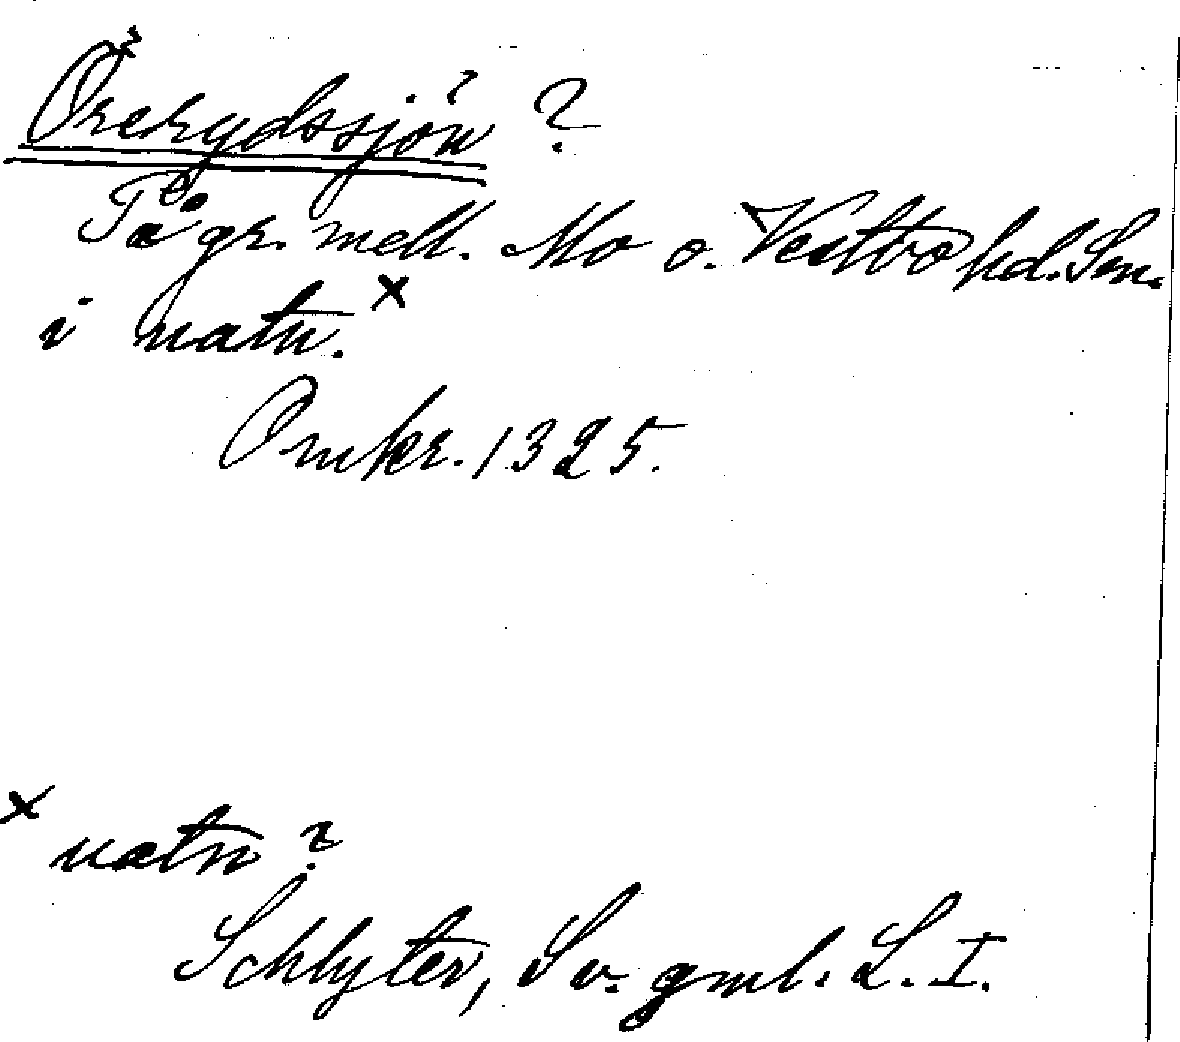 Örerydssjön ?
På gr. mell. Mo o. Vestbo hd. Sm.
i uatu. x
Omkr. 1325.
x uatu ?
Schlyter, Sv. gml. L. I.